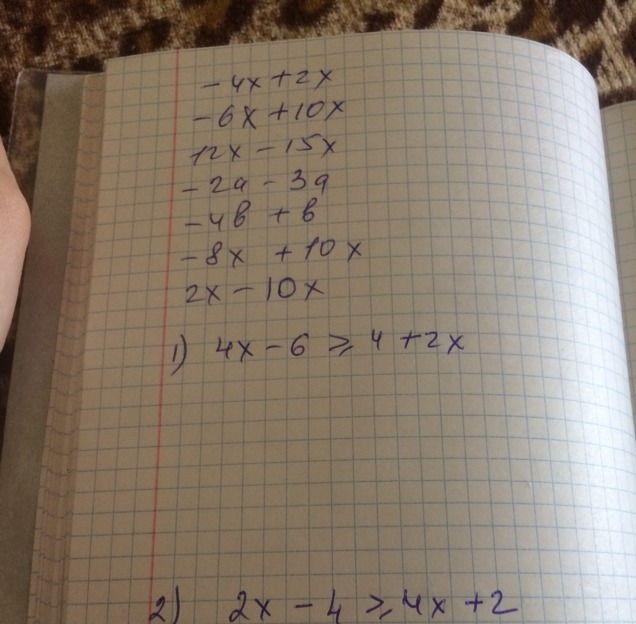 -4x+2x
-6x+10x
12x-15x
-2a-3a
-4b+b
-8x+10x
2x-10x
1) 4x-6⩾4+2x
2) 2x-4⩾4x+2